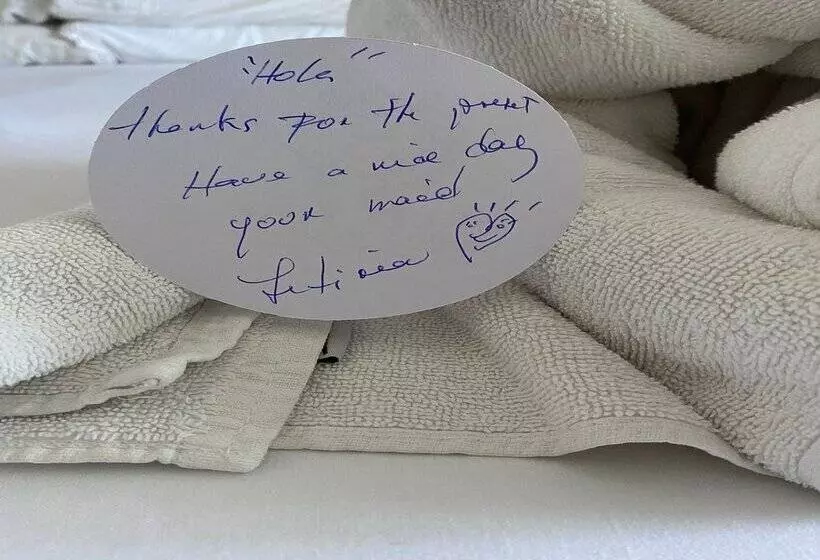 "Hola"
Thanks For the present
Have a nice day
your maid
Leticia